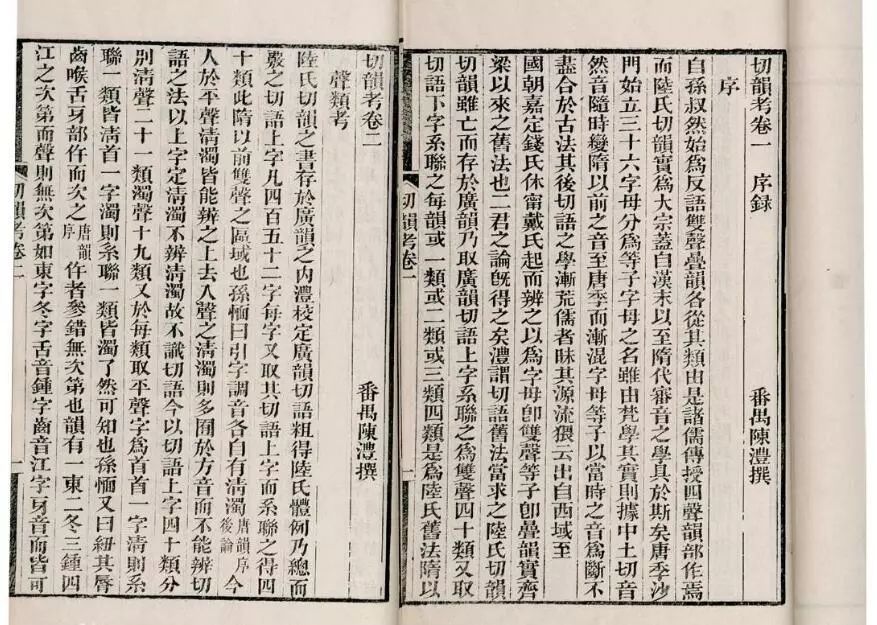 切韻考卷一 序錄
番禺陳澧撰
序
自孫叔然始爲反語雙聲疊韻各從其類由是諸儒傳授四聲韻部作焉
而陸氏切韻實爲大宗蓋自漢末以至隋代審音之學具於斯矣唐季沙
門始立三十六字母分爲等子字母之名雖由梵學其實則據中土切音
然音隨時變隋以前之音至唐季而漸混字母等子以當時之音爲斷不
盡合於古法其後切語之學漸荒儒者昧其源流猥云出自西域至
國朝嘉定錢氏休甯戴氏起而辨之以爲字母卽雙聲等子卽疊韻實齊
梁以來之舊法也二君之論旣得之矣澧謂切語舊法當求之陸氏切韻
切韻雖亡而存於廣韻乃取廣韻切語上字系聯之爲雙聲四十類又取
切語下字系聯之每韻或一類或二類或三類四類是爲陸氏舊法隋以
切韻考卷一
一
切韻考卷二
番禺陳澧撰
聲類考
陸氏切韻之書存於廣韻之內澧校定廣韻切語粗得陸氏體例乃總而
覈之切語上字凡四百五十二字每字又取其切語上字而系聯之得四
十類此隋以前雙聲之區域也孫愐曰引字調音各自有清濁唐韻序後論今
人於平聲清濁皆能辨之上去入聲之清濁則多囿於方音而不能辨切
語之法以上字定清濁不辨清濁故不識切語今以切語上字四十類分
別清聲二十一類濁聲十九類又於每類取平聲字爲首首一字清則系
聯一類皆清首一字濁則系聯一類皆濁了然可知也孫愐又曰紐其脣
齒喉舌牙部仵而次之唐韻序仵者參錯無次第也韻有一東二冬三鍾四
江之次第而聲則無次第如東字冬字舌音鍾字齒音江字牙音而皆可
切韻考卷二
一